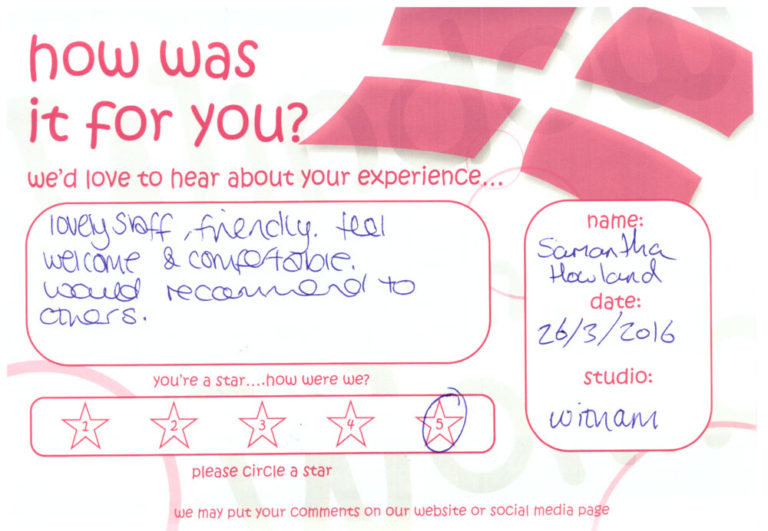 how was
it for you?
we'd love to hear about your experience...
lovely staff, friendly. feel
welcome & comfortable.
would recommend to
others.
name:
Samantha
Howland
date:
26/3/2016
studio:
witham
you're a star....how were we?
1 2 3 4 5
please circle a star
we may put your comments on our website or social media page